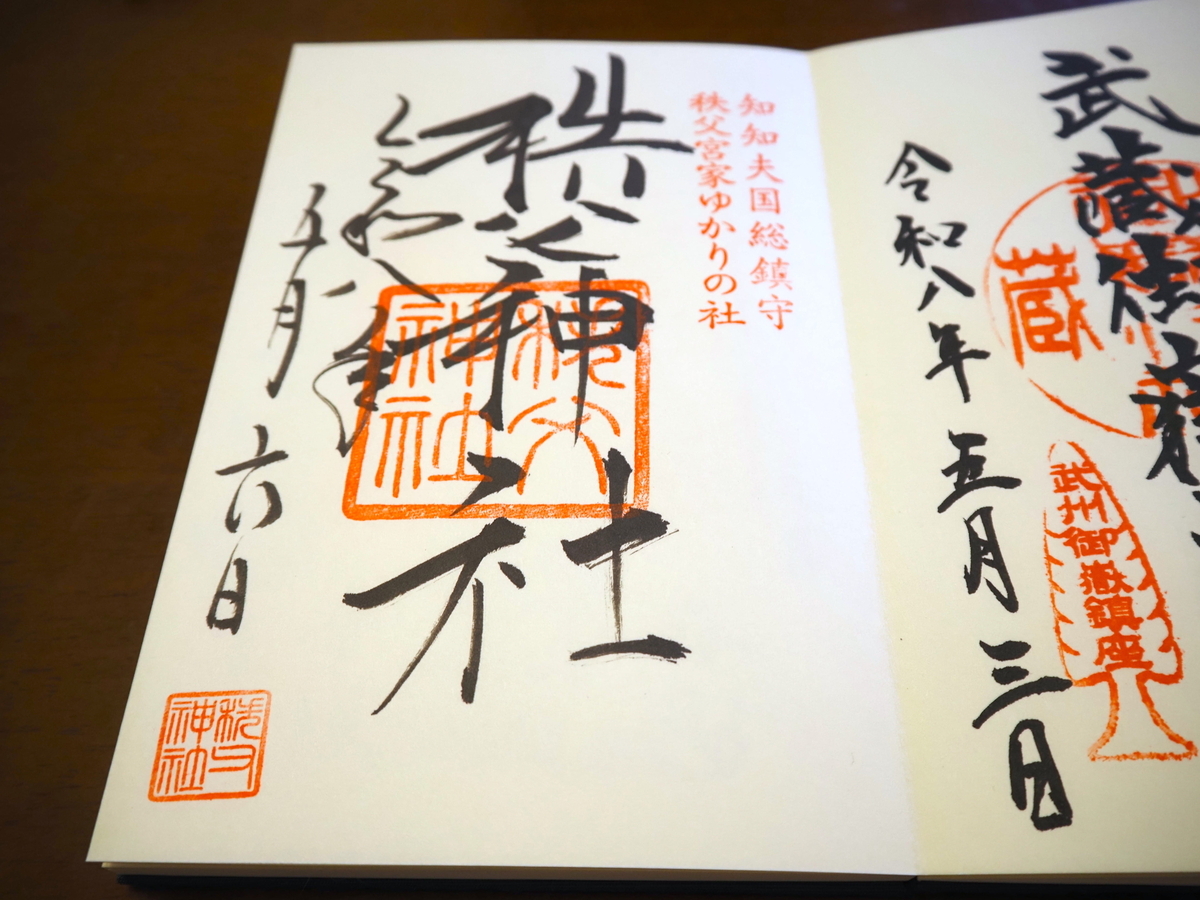 武蔵御嶽
蔵
武州御嶽鎮座
令和八年五月三日
知知夫国総鎮守
秩父宮家ゆかりの社
秩父神社
秩父
神社
令和八年
五月六日
秩父
神社